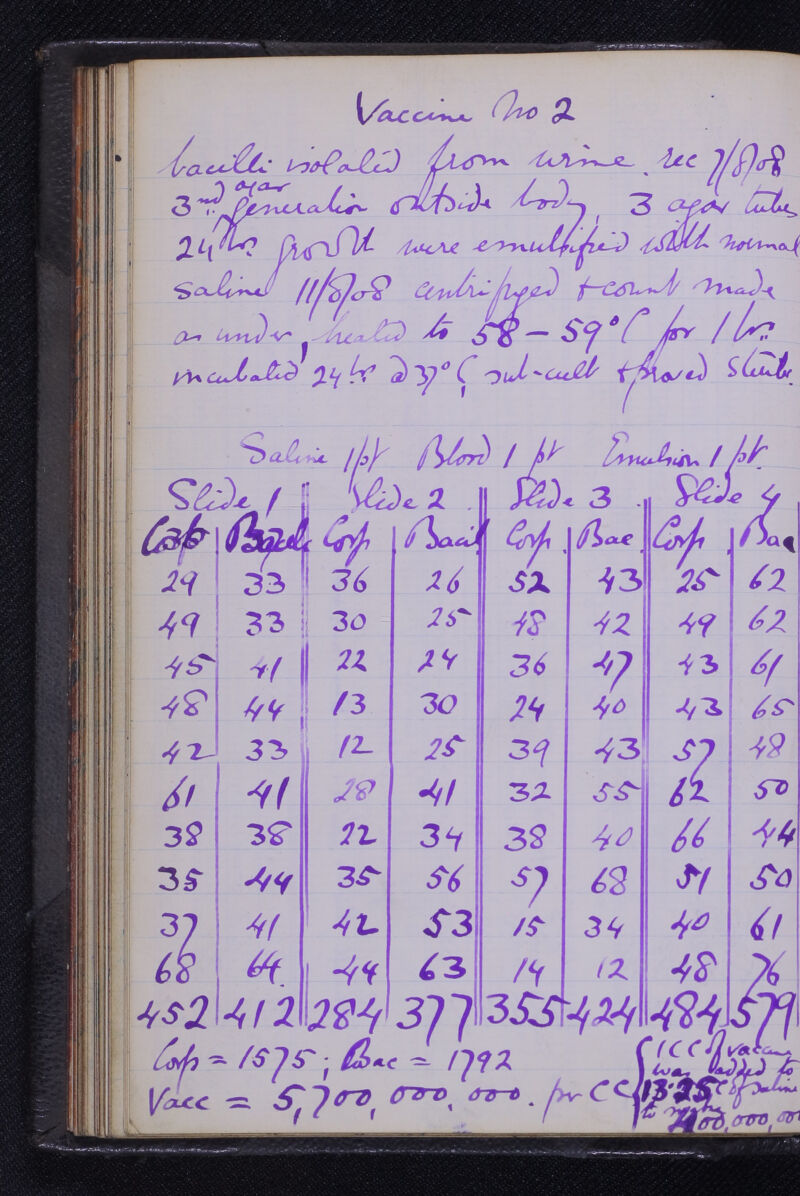 Vaccine No 2
bacilli isolated from urine. rec 7/8/08
3rd agar generation outside body, 3 agar tubes
24 hrs growth were emulsified with normal
saline 11/8/08 centrifuged + count made
as under, heated to 58 – 59° C for 1 hr.
incubated 24 hrs @ 37° C, sub-cult + proved Sterile.
Saline 1 pt Blood 1 pt Emulsion 1 pt.
Slide 1 Slide 2 Slide 3 Slide 4
Corp Bacill Corp Bacil Corp Bac Corp Bac
29 33 36 26 52 43 25 62
49 33 30 25 48 42 49 62
45 41 22 24 36 47 43 61
48 44 13 30 24 40 43 65
42 33 12 25 39 43 57 48
61 41 28 41 32 55 62 50
38 38 22 34 38 40 66 44
35 44 35 56 57 68 51 50
37 41 42 53 15 34 40 61
68 64 44 63 14 12 48 76
452 412 284 377 355 424 484 579
Corp = 1575; Bac = 1792
Vacc = 5,700,000,000. per CC
1 CC of vaccine
was added to
13.25 CC of saline
to make
400,000,000